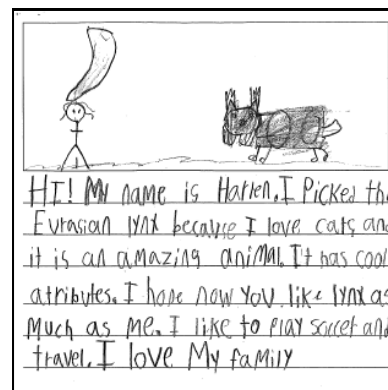 HI! My name is Harlen. I Picked th
Eurasian lynx because I love cats and
it is an amazing animal. It has cool
atributes. I hope now you like lynx as
Much as me. I like to play soccer and
travel. I love My family